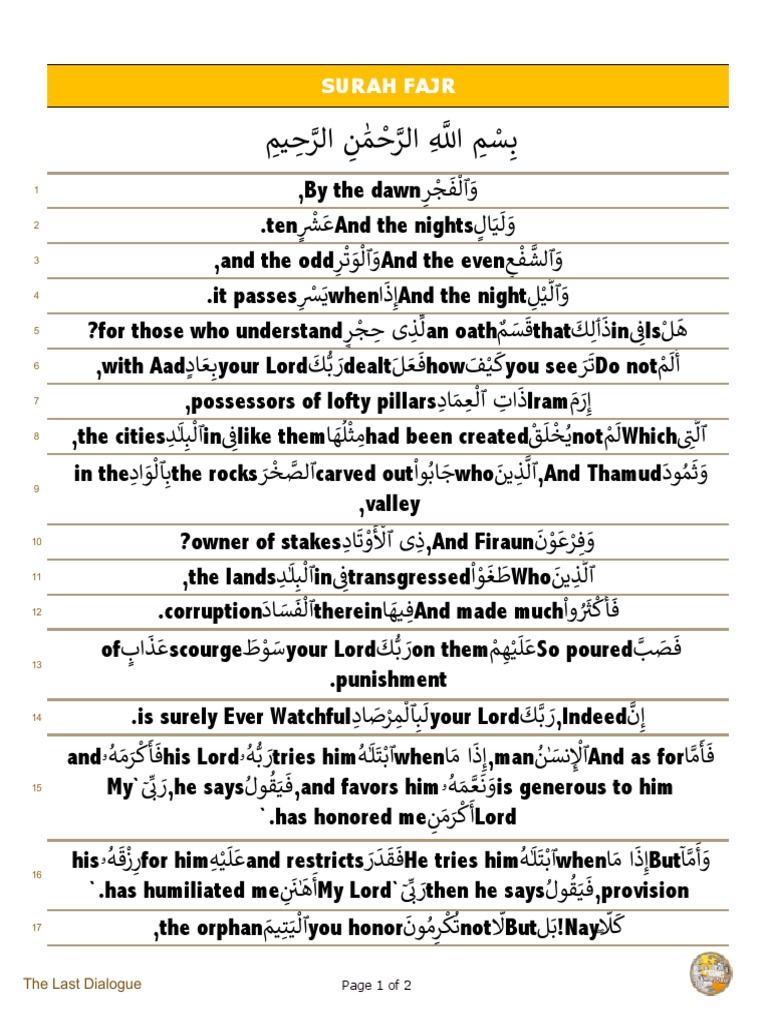 SURAH FAJR
بِسْمِ اللَّهِ الرَّحْمَٰنِ الرَّحِيمِ
1 وَٱلْفَجْرِBy the dawn,
2 وَلَيَالٍAnd the nightsعَشْرٍten.
3 وَٱلشَّفْعِAnd the evenوَٱلْوَتْرِand the odd,
4 وَٱلَّيْلِAnd the nightإِذَاwhenيَسْرِit passes.
5 هَلْIsفِىinذَٰلِكَthatقَسَمٌan oathلِّذِى حِجْرٍfor those who understand?
6 أَلَمْDo notتَرَyou seeكَيْفَhowفَعَلَdealtرَبُّكَyour Lordبِعَادٍwith Aad,
7 إِرَمَIramذَاتِ ٱلْعِمَادِpossessors of lofty pillars,
8 ٱلَّتِىWhichلَمْnotيُخْلَقْhad been createdمِثْلُهَاlike themفِىinٱلْبِلَـٰدِthe cities,
9 وَثَمُودَAnd Thamud,ٱلَّذِينَwhoجَابُوا۟carved outٱلصَّخْرَthe rocksبِٱلْوَادِin the
valley,
10 وَفِرْعَوْنَAnd Firaun,ذِى ٱلْأَوْتَادِowner of stakes?
11 ٱلَّذِينَWhoطَغَوْا۟transgressedفِىinٱلْبِلَـٰدِthe lands,
12 فَأَكْثَرُوا۟And made muchفِيهَاthereinٱلْفَسَادَcorruption.
13 فَصَبَّSo pouredعَلَيْهِمْon themرَبُّكَyour Lordسَوْطَscourgeعَذَابٍof
punishment.
14 إِنَّIndeed,رَبَّكَyour Lordلَبِٱلْمِرْصَادِis surely Ever Watchful.
15 فَأَمَّاAnd as forٱلْإِنسَـٰنُman,إِذَا مَاwhenٱبْتَلَىٰهُtries himرَبُّهُۥhis Lordفَأَكْرَمَهُۥand
is generous to himوَنَعَّمَهُۥand favors him,فَيَقُولُhe says,رَبِّىٓ`My
Lordأَكْرَمَنِhas honored me.`
16 وَأَمَّآButإِذَا مَاwhenٱبْتَلَىٰهُHe tries himفَقَدَرَand restrictsعَلَيْهِfor himرِزْقَهُۥhis
provision,فَيَقُولُthen he saysرَبِّىٓ`My Lordأَهَـٰنَنِhas humiliated me.`
17 كَلَّاNay!بَلButلَّاnotتُكْرِمُونَyou honorٱلْيَتِيمَthe orphan,
The Last Dialogue
Page 1 of 2